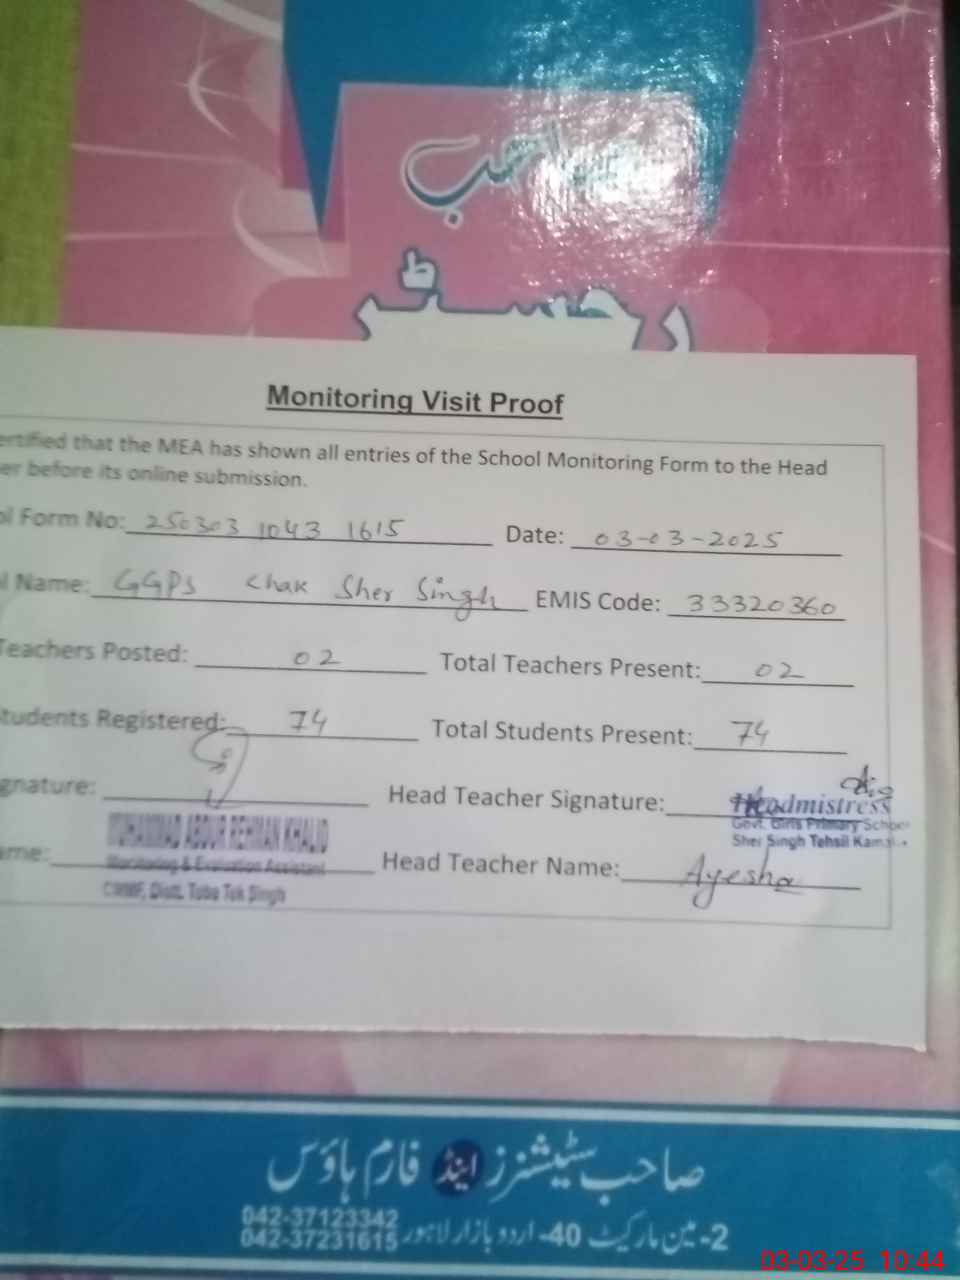 صاحب
رجسٹر
Monitoring Visit Proof
ertified that the MEA has shown all entries of the School Monitoring Form to the Head
er before its online submission.
ol Form No: 250303 1043 1615 Date: 03-03-2025
l Name: GGPS Chak Sher Singh EMIS Code: 33320360
Teachers Posted: 02 Total Teachers Present: 02
tudents Registered: 74 Total Students Present: 74
gnature: Head Teacher Signature:
Headmistress
Govt. Girls Primary School
Sher Singh Tehsil
MUHAMMAD ABDUR REHMAN KHALID
ame: Head Teacher Name: Ayesha
Monitoring & Evaluation Assistant
CMMF, Distt. Toba Tek Singh
صاحب سٹیشنرز اینڈ فارم ہاؤس
2-مین مارکیٹ 40-اردو بازار لاہور
042-37123342
042-37231615
03-03-25 10:44